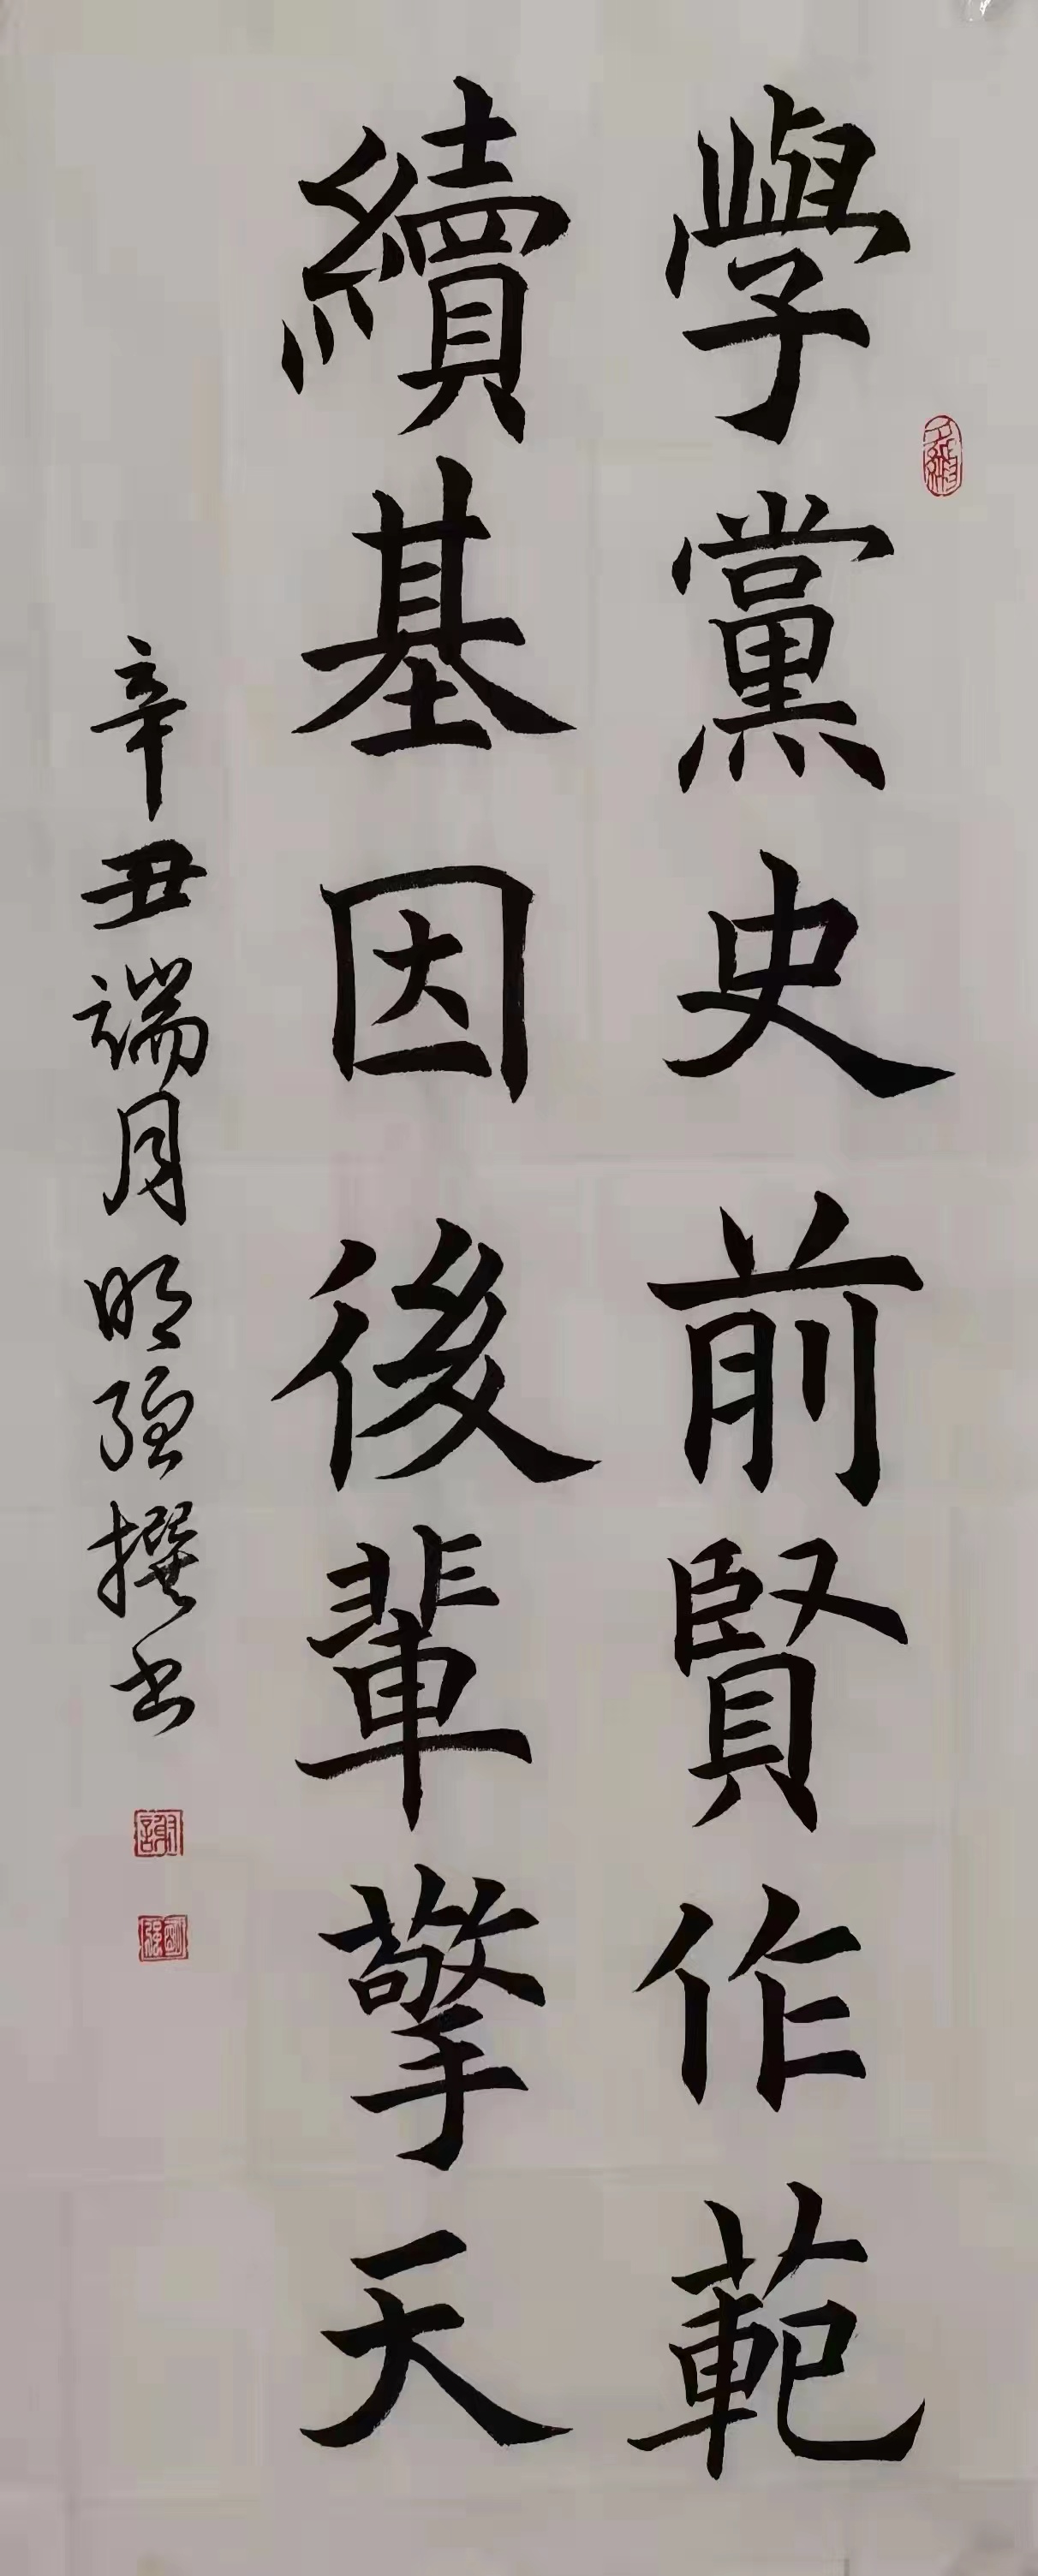 學黨史前賢作範
續基因後輩擎天
辛丑端月明強撰书
謝